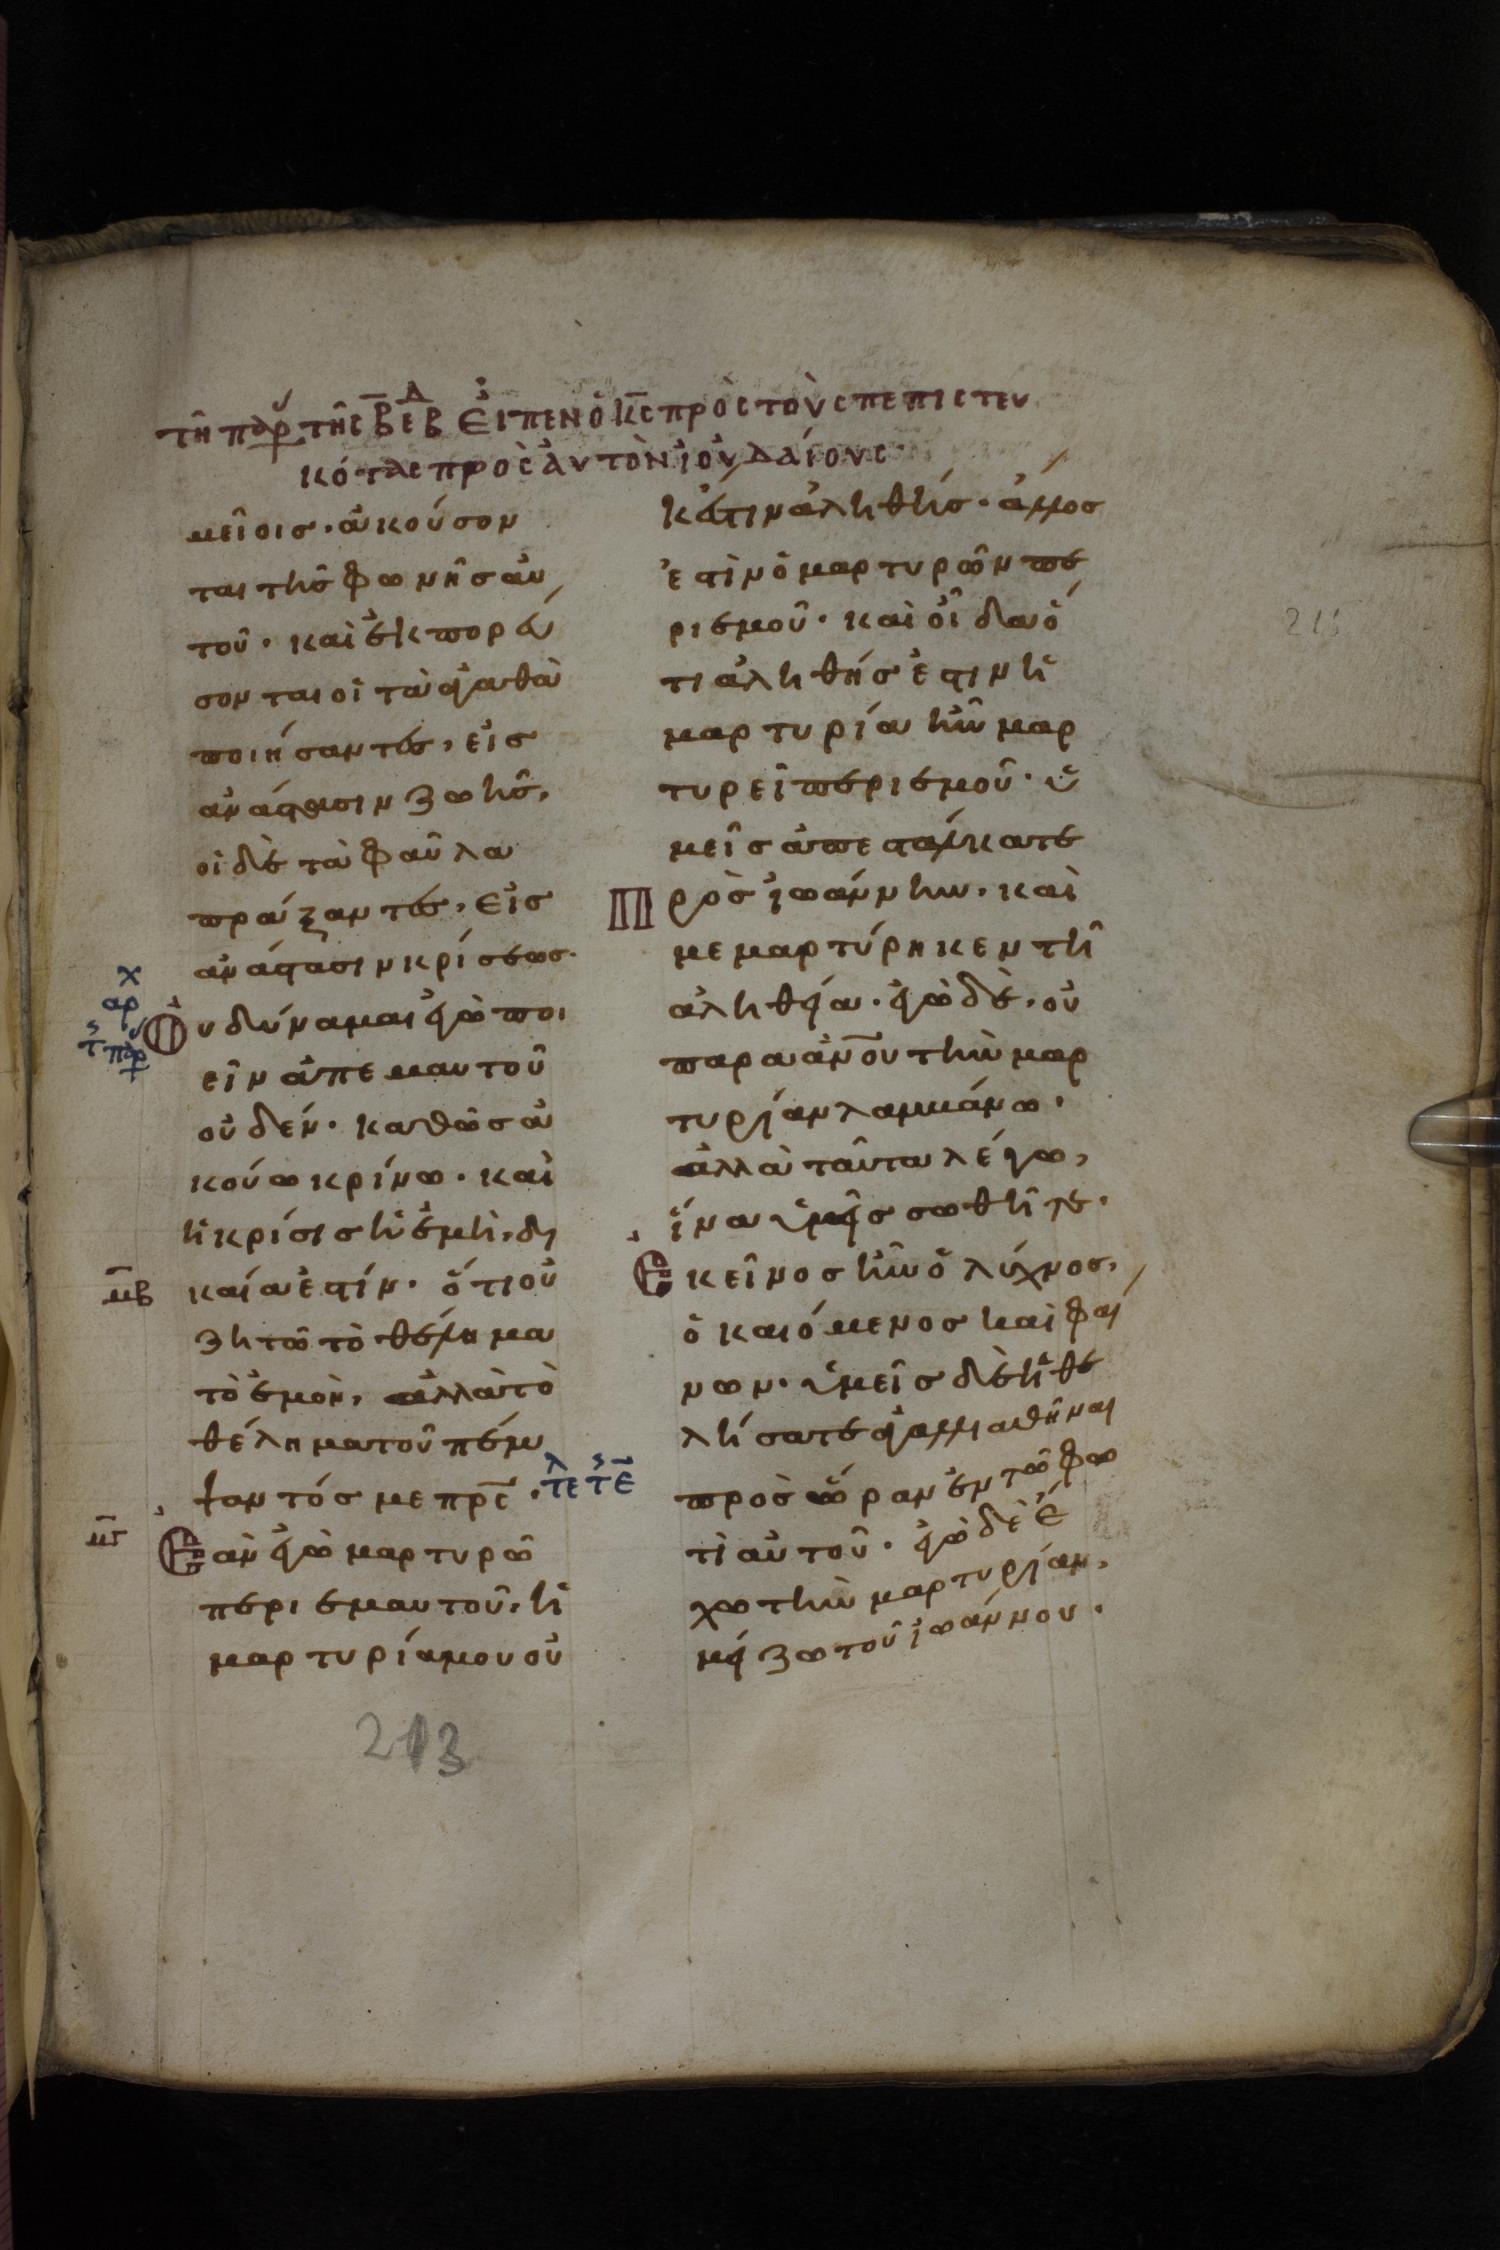 τῆ παρ τῆς β ἑβδ Εἶπεν ὁ κ̅ς̅ πρὸς τοὺς πεπιστευ
κότας πρὸς ἀυτὸν ἰουδαίους·
μείοις· ἀκούσον
ται τῆς φωνῆς αὐ
τοῦ· καὶ ἐκπορεύ
σονται οἱ τὰ ἀγαθὰ
ποιήσαντες, εἰς
ἀνάστασιν ζωῆς,
οἱ δὲ τὰ φαῦλα
πράξαντες, εἰς
ἀνάστασιν κρίσεως·
χ
αρ
τ παρ
Οὐ δύναμαι ἐγὼ ποι
εῖν ἀπεμαυτοῦ
οὐδέν· καθὼς ἀ
κούω κρίνω· καὶ
ἡ κρίσις ἡ ἐμὴ, δι
μβ
καία ἐστίν· ὅτι οὐ
ζητῶ τὸ θέλημα
τὸ ἐμὸν, ἀλλὰ τὸ
θέλημα τοῦ πέμ
ψαντός με πρ̅ς̅· τε
μγ
Ἐὰν ἐγὼ μαρτυρῶ
περὶ ἐμαυτοῦ, ἡ
μαρτυρία μου οὐ
κ ἔστιν ἀληθής· ἄλλος
ἐστὶν ὁ μαρτυρῶν πε
ρὶ ἐμοῦ· καὶ οἶδα ὅ
τι ἀληθής ἐστιν ἡ
μαρτυρία ἣν μαρ
τυρεῖ περὶ ἐμοῦ· ὑ
μεῖς ἀπεστάλκατε
Πρὸς ἰωάννην, καὶ
μεμαρτύρηκεν τῆ
ἀληθεία· ἐγὼ δὲ, οὐ
παρα ἀν̅ου τὴν μαρ
τυρίαν λαμβάνω·
ἀλλὰ ταῦτα λέγω,
ἵνα ὑμεῖς σωθῆτε·
Ἐκεῖνος ἦν ὁ λύχνος,
ὁ καιόμενος καὶ φαί
νων· ὑμεῖς δὲ ἠθε
λήσατε ἀγαλλιαθῆναι
πρὸς ὥραν ἐν τῶ φω
τὶ αὐτοῦ· ἐγὼ δὲ ἔ
χω τὴν μαρτυρίαν,
μείζω τοῦ ἰωάννου·
213